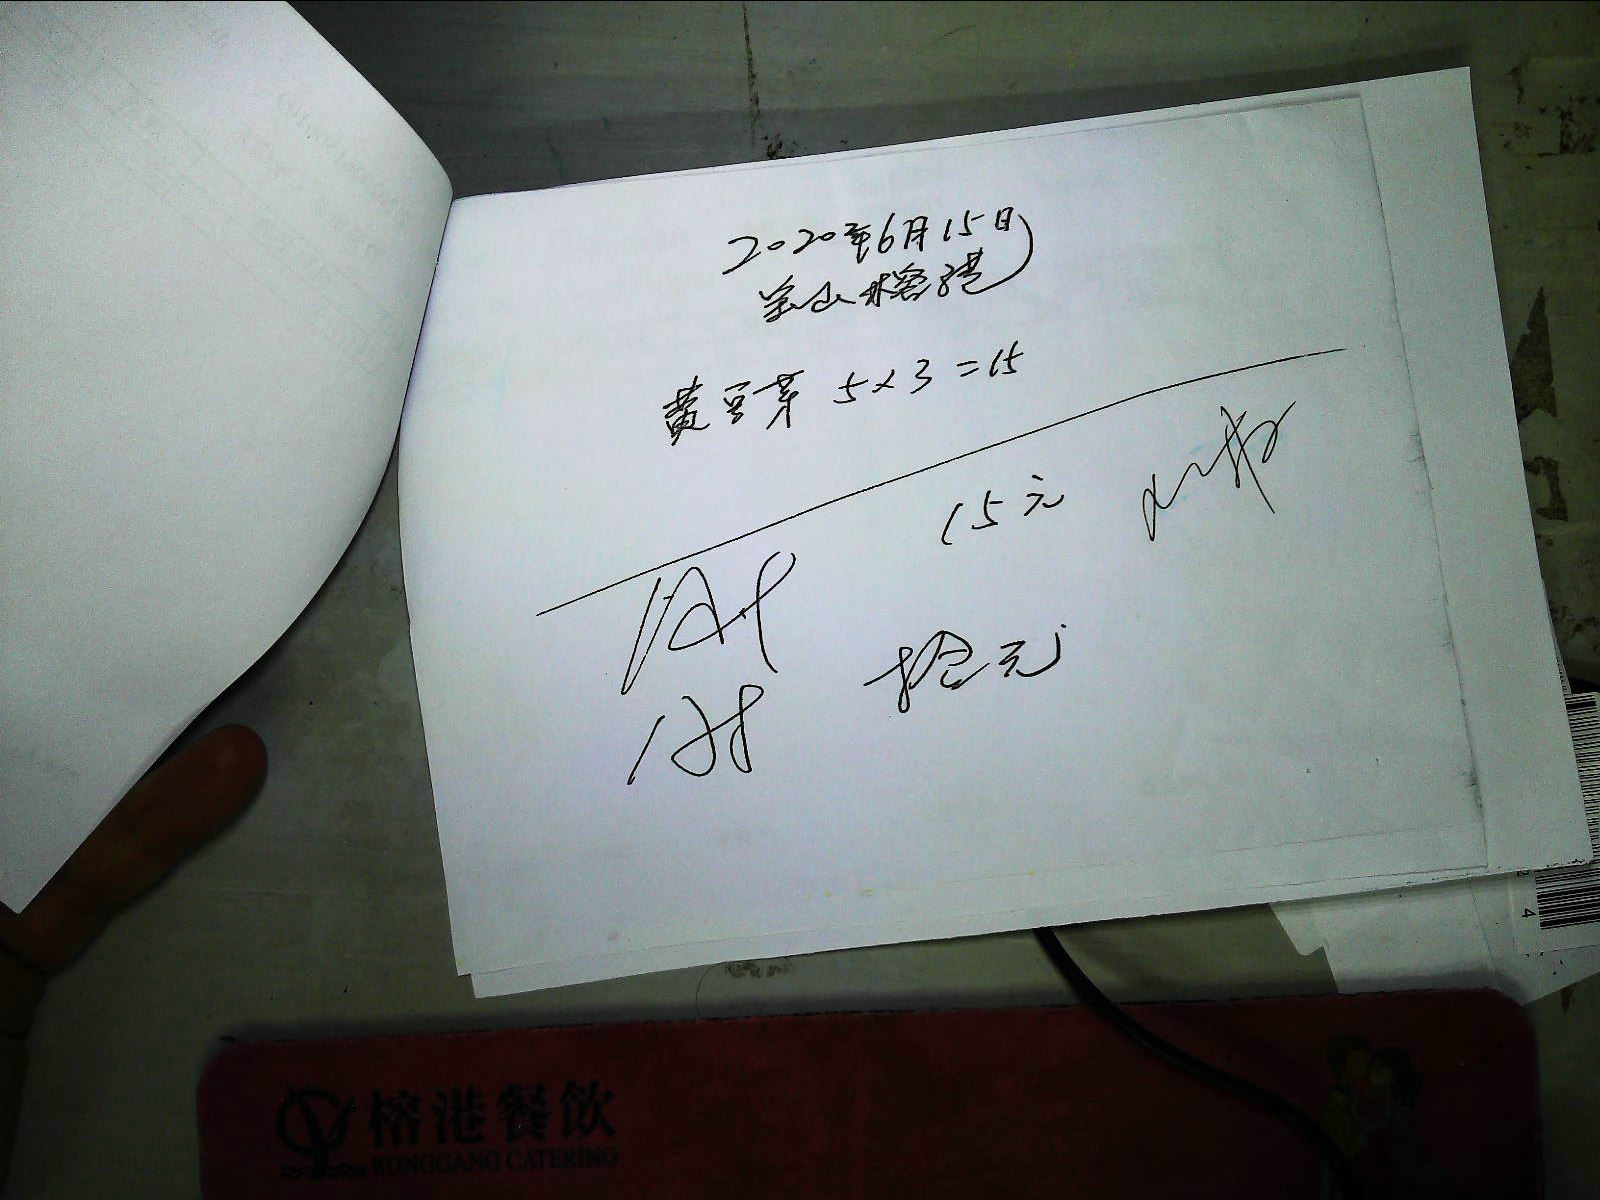 2020年6月15日
金山榕港
黄豆芽 5×3=15
15元
拾元
榕港餐飲
RONGGANG CATERING
4